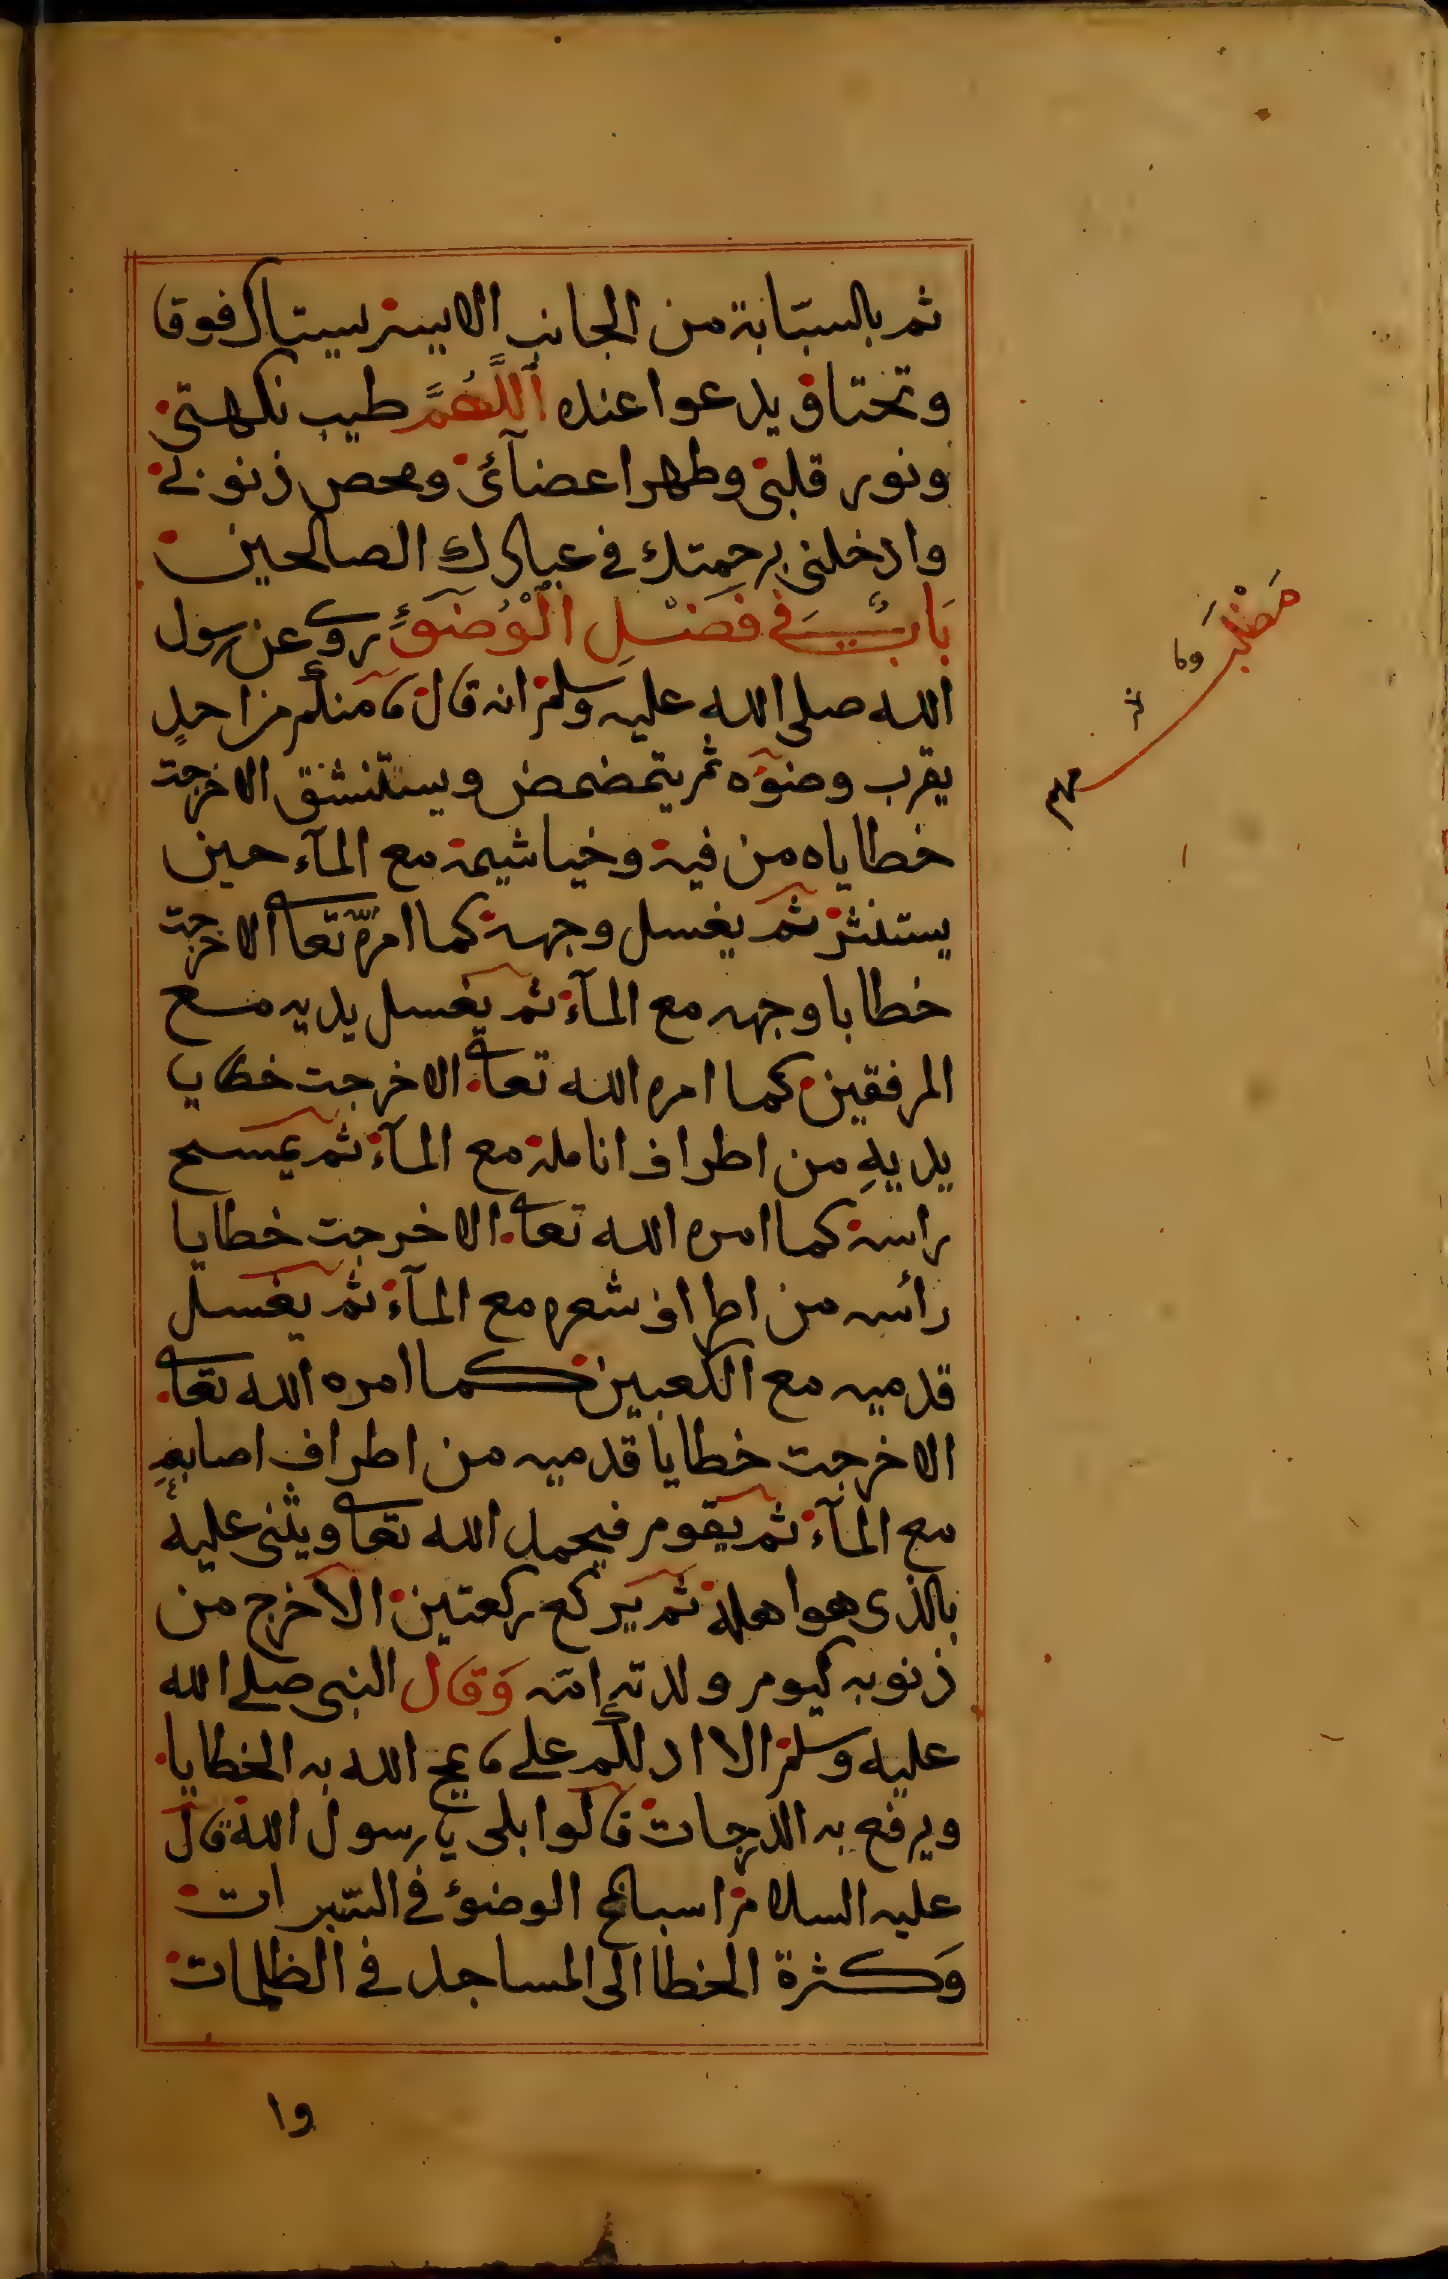 ثم بالسبّابة من الجانب الايسر يستاك فوقا
وتحتا ويدعوا عنده اَللّٰهُمَّ طيب نكهتى
ونور قلبى وطهر اعضآئى ومحص ذنوبى
وادخلنى برحمتك فى عبادك الصالحين
بَابٌ فِى فَضْلِ الْوُضُوءِ روى عن رسول
الله صلى الله عليه وسلم انه قال ما منكم من احدٍ
يقرب وضوٓه ثم يتمضمض ويستنشق الا خرجت
خطاياه من فيه وخياشيمه مع المآء حين
يستنثر ثم يغسل وجهه كما امره الله تعالى الا خرجت
خطايا وجهه مع المآء ثم يغسل يديه مع
المرفقين كما امره الله تعالى الا خرجت خطايا
يديهِ من اطراف انامله مع المآء ثم يمسح
راسه كما امره الله تعالى الا خرجت خطايا
رأسه من اطراف شعره مع المآء ثم يغسل
قدميه مع الكعبين كما امره الله تعالى
الا خرجت خطايا قدميه من اطراف اصابعه
مع المآء ثم يقوم فيحمد الله تعالى ويثنى عليه
بالذى هو اهله ثم يركع ركعتين الا خرج من
ذنوبه كيوم ولدته امّه وَقَال النبى صلى الله
عليه وسلم الا ادلكم على ما يمح الله به الخطايا
ويرفع به الدرجات قالوا بلى يا رسول الله قال
عليه السلام اسباغ الوضوء فى السّبرات
وَكثرة الخطا الى المساجد فى الظلمات
وا